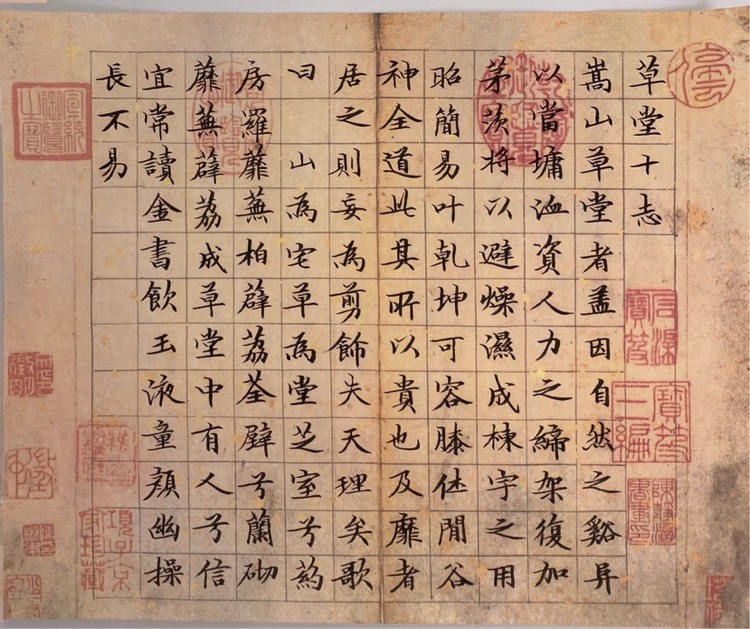 草堂十志
嵩山草堂者盖因自然之谿异
以當墉洫資人力之締架復加
茅茨將以避燥濕成棟宇之用
昭簡易叶乾坤可容膝休閒谷
神全道此其所以貴也及靡者
居之則妄為剪飾失天理矣歌
曰 山為宅草為堂芝室兮葯
房羅蘼蕪柏薜荔荃壁兮蘭砌
蘼蕪薜荔成草堂中有人兮信
宜常讀金書飲玉液童顏幽操
長不易
石渠寶笈
寶笈三編
宣統御覽之寶
項子京家珍藏